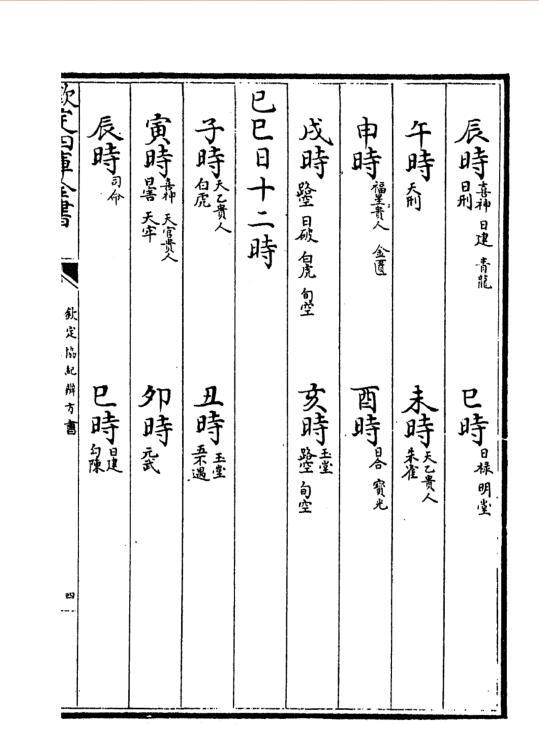 辰時 喜神 日建 青龍 日刑 巳時 日禄 明堂
午時 天刑 未時 天乙貴人 朱雀
申時 福星貴人 金匱 酉時 日合 寳光
戌時 路空 日破 白虎 旬空 亥時 玉堂 路空 旬空
己巳日十二時
子時 天乙貴人 白虎 丑時 玉堂 五不遇
寅時 喜神 天官貴人 日害 天牢 卯時 元武
辰時 司命 巳時 日建 勾陳
欽定四庫全書
欽定協紀辨方書
四